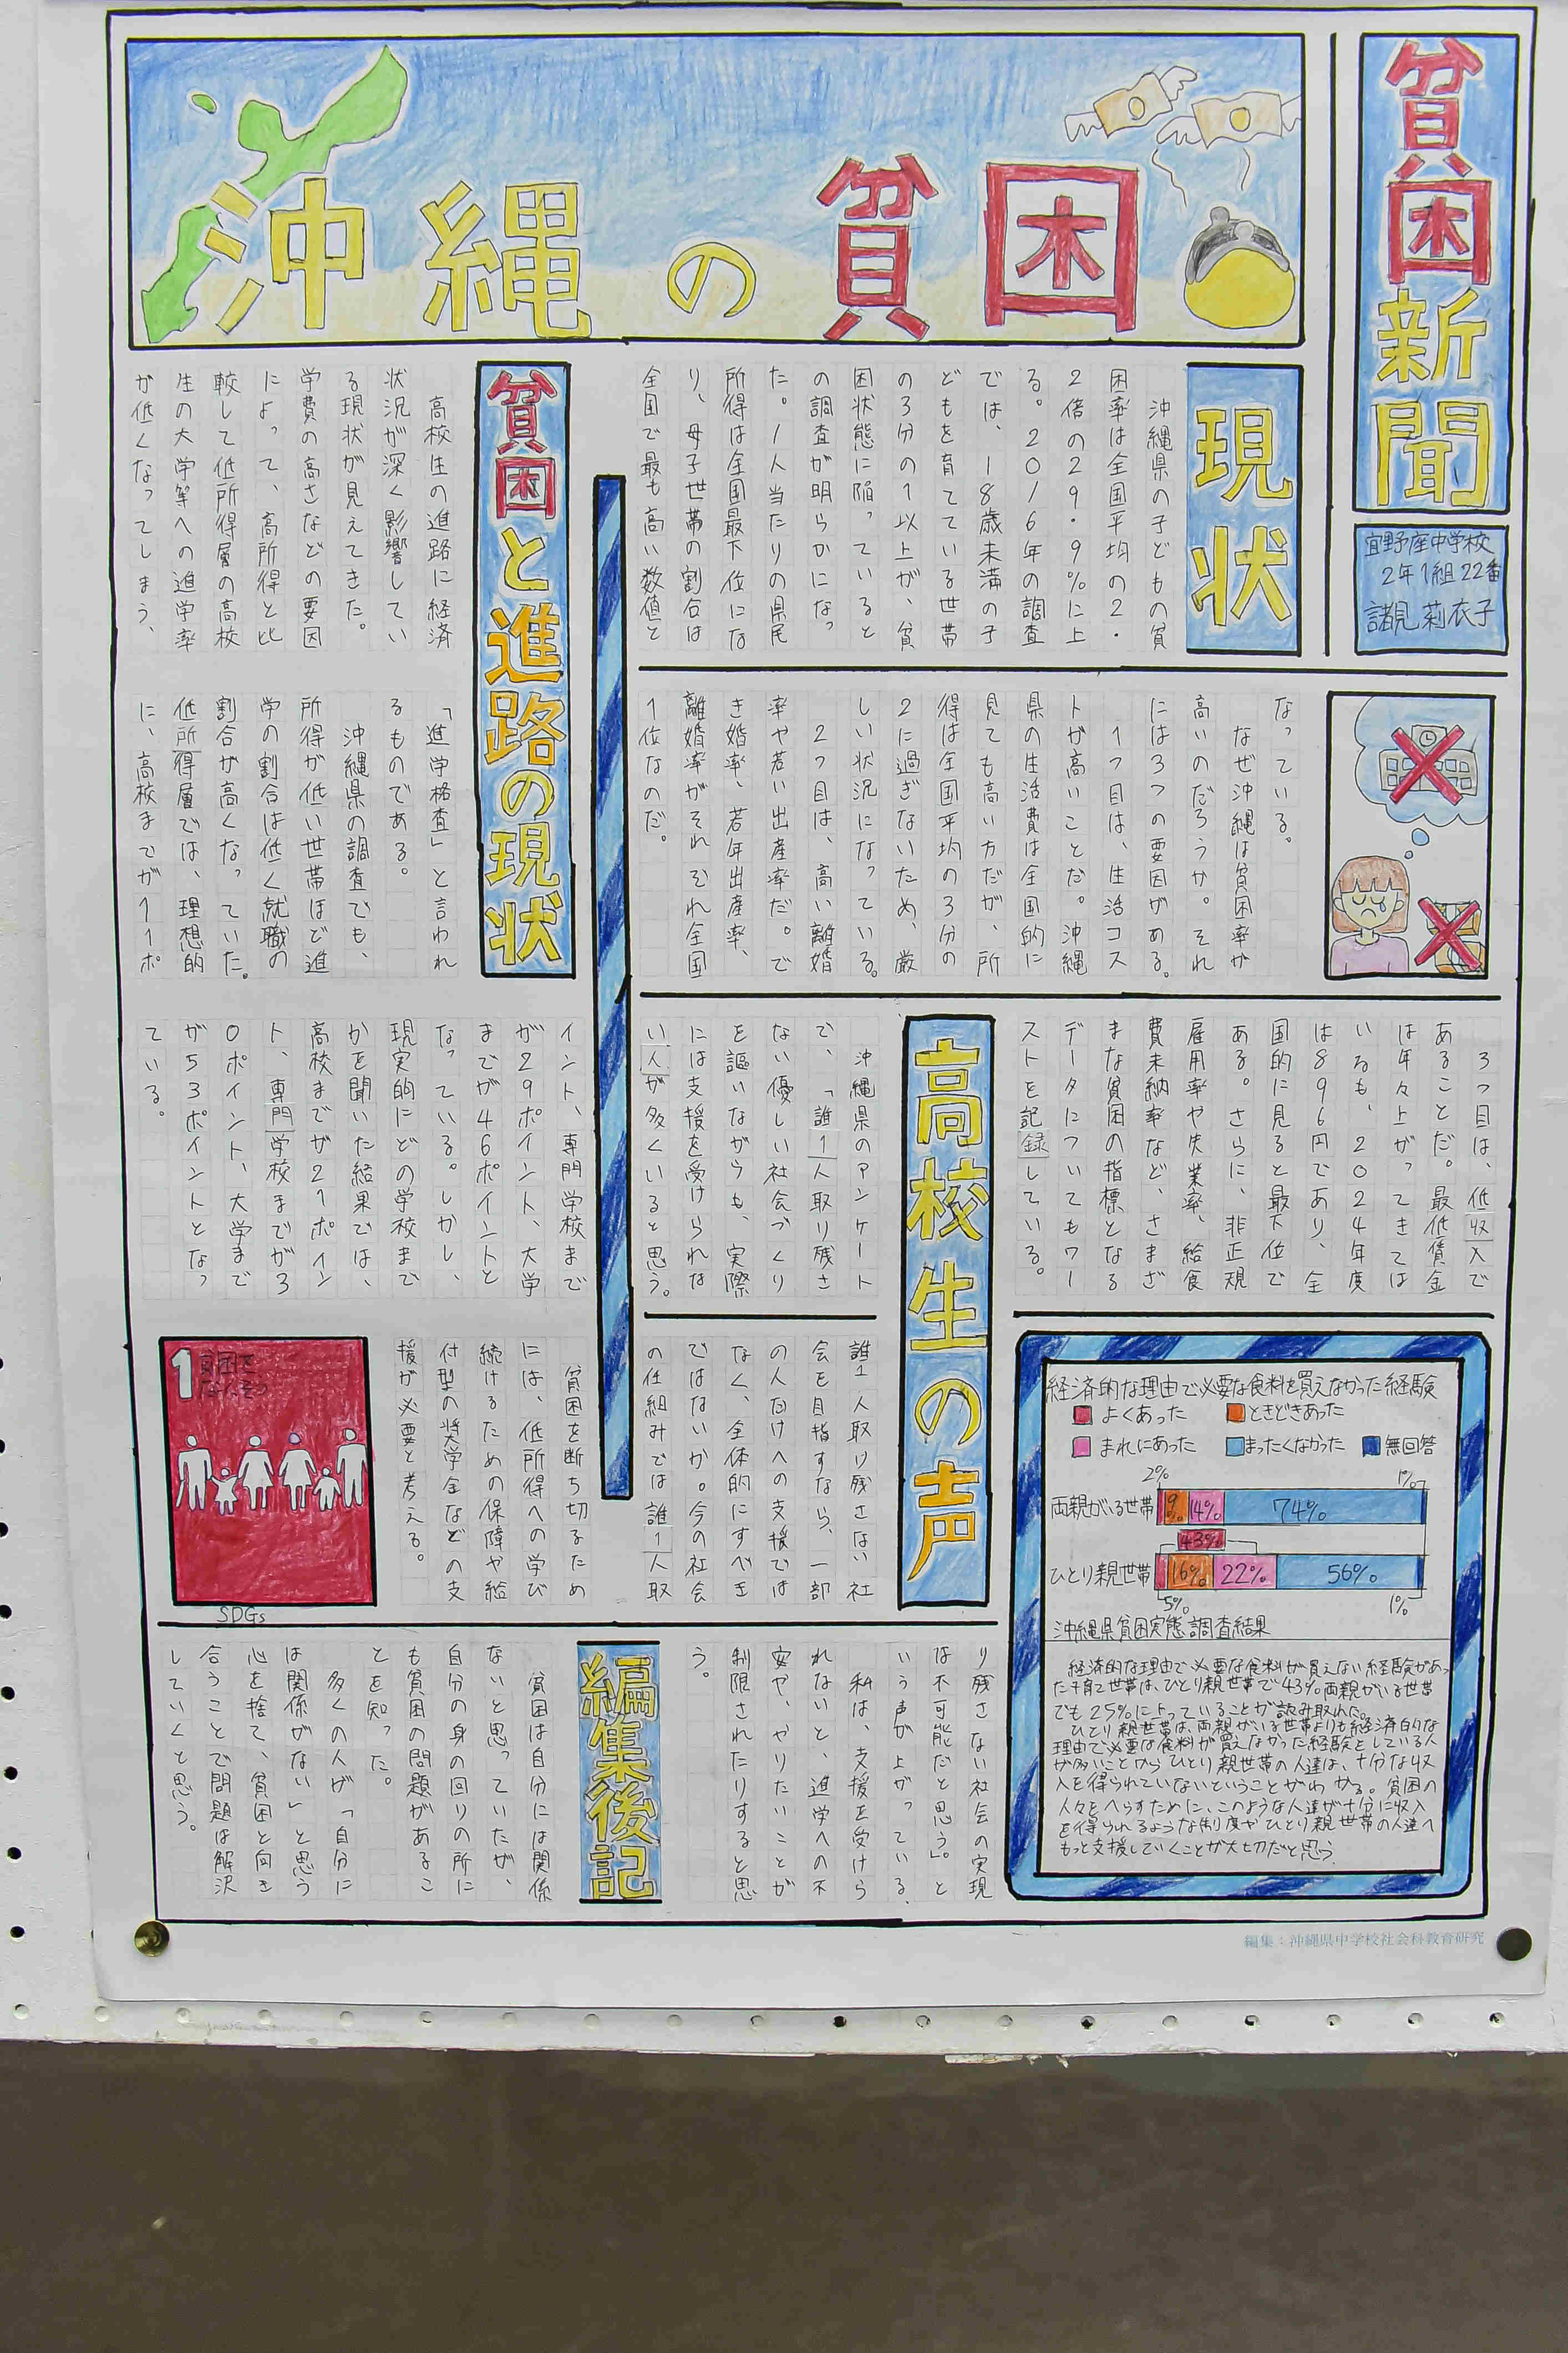 貧困新聞
宜野座中学校
2年1組22番
諸見 莉衣子
沖縄の貧困
現状
沖縄県の子どもの貧
困率は全国平均の2.
2倍の29.9%に上
る。2016年の調査
では、18歳未満の子
どもを育てている世帯
の3分の1以上が、貧
困状態に陥っていると
の調査が明らかになっ
た。1人当たりの県民
所得は全国最下位にな
り、母子世帯の割合は
全国で最も高い数値と
なっている。
なぜ沖縄は貧困率が
高いのだろうか。それ
には3つの要因がある。
1つ目は、生活コス
トが高いことだ。沖縄
県の生活費は全国的に
見ても高い方だが、所
得は全国平均の3分の
2に過ぎないため、厳
しい状況になっている。
2つ目は、高い離婚
率や若い出産率だ。で
き婚率、若年出産率、
離婚率がそれぞれ全国
1位なのだ。
3つ目は、低収入で
あることだ。最低賃金
は年々上がってきては
いるも、2024年度
は896円であり、全
国的に見ると最下位で
ある。さらに、非正規
雇用率や失業率、給食
費未納率など、さまざ
まな貧困の指標となる
データについてもワー
ストを記録している。
高校生の声
沖縄県のアンケート
で、「誰1人取り残さ
ない優しい社会づくり
を謳いながらも、実際
には支援を受けられな
い人が多くいると思う。
誰1人取り残さない社
会を目指すなら、一部
の人だけへの支援では
なく、全体的にすべき
ではないか。今の社会
の仕組みでは誰1人取
り残さない社会の実現
は不可能だと思う」。と
いう声が上がっている。
私は、支援を受けら
れないと、進学への不
安や、やりたいことが
制限されたりすると思
う。
貧困と進路の現状
高校生の進路に経済
状況が深く影響してい
る現状が見えてきた。
学費の高さなどの要因
によって、高所得と比
較して低所得層の高校
生の大学等への進学率
が低くなってしまう、
「進学格査」と言われ
るものである。
沖縄県の調査でも、
所得が低い世帯ほど進
学の割合は低く就職の
割合が高くなっていた。
低所得層では、理想的
に、高校までが11ポ
イント、専門学校まで
が29ポイント、大学
までが46ポイントと
なっている。しかし、
現実的にどの学校まで
かを聞いた結果では、
高校までが21ポイン
ト、専門学校までが3
0ポイント、大学まで
が53ポイントとなっ
ている。
貧困を断ち切るため
には、低所得への学び
続けるための保障や給
付型の奨学金などの支
援が必要と考える。
1 貧困を
なくそう
SDGs
経済的な理由で必要な食料を買えなかった経験
よくあった ときどきあった
まれにあった まったくなかった 無回答
2% 1%
両親がいる世帯 9% 14% 74%
43%
ひとり親世帯 16% 22% 56%
5% 1%
沖縄県貧困実態調査結果
経済的な理由で必要な食料が買えない経験があっ
た子育て世帯は、ひとり親世帯で43%両親がいる世帯
でも25%に上っていることが読み取れた。
ひとり親世帯は、両親がいる世帯よりも経済的な
理由で必要な食料が買えなかった経験をしている人
が多いことからひとり親世帯の人達は、十分な収
入を得られていないということがわかる。貧困の
人々をへらすために、このような人達が十分に収入
を得られるような制度やひとり親世帯の人達へ
もっと支援していくことが大切だと思う
編集後記
貧困は自分には関係
ないと思っていたが、
自分の身の回りの所に
も貧困の問題があるこ
とを知った。
多くの人が「自分に
は関係がない」と思う
心を捨て、貧困と向き
合うことで問題は解決
していくと思う。
編集：沖縄県中学校社会科教育研究